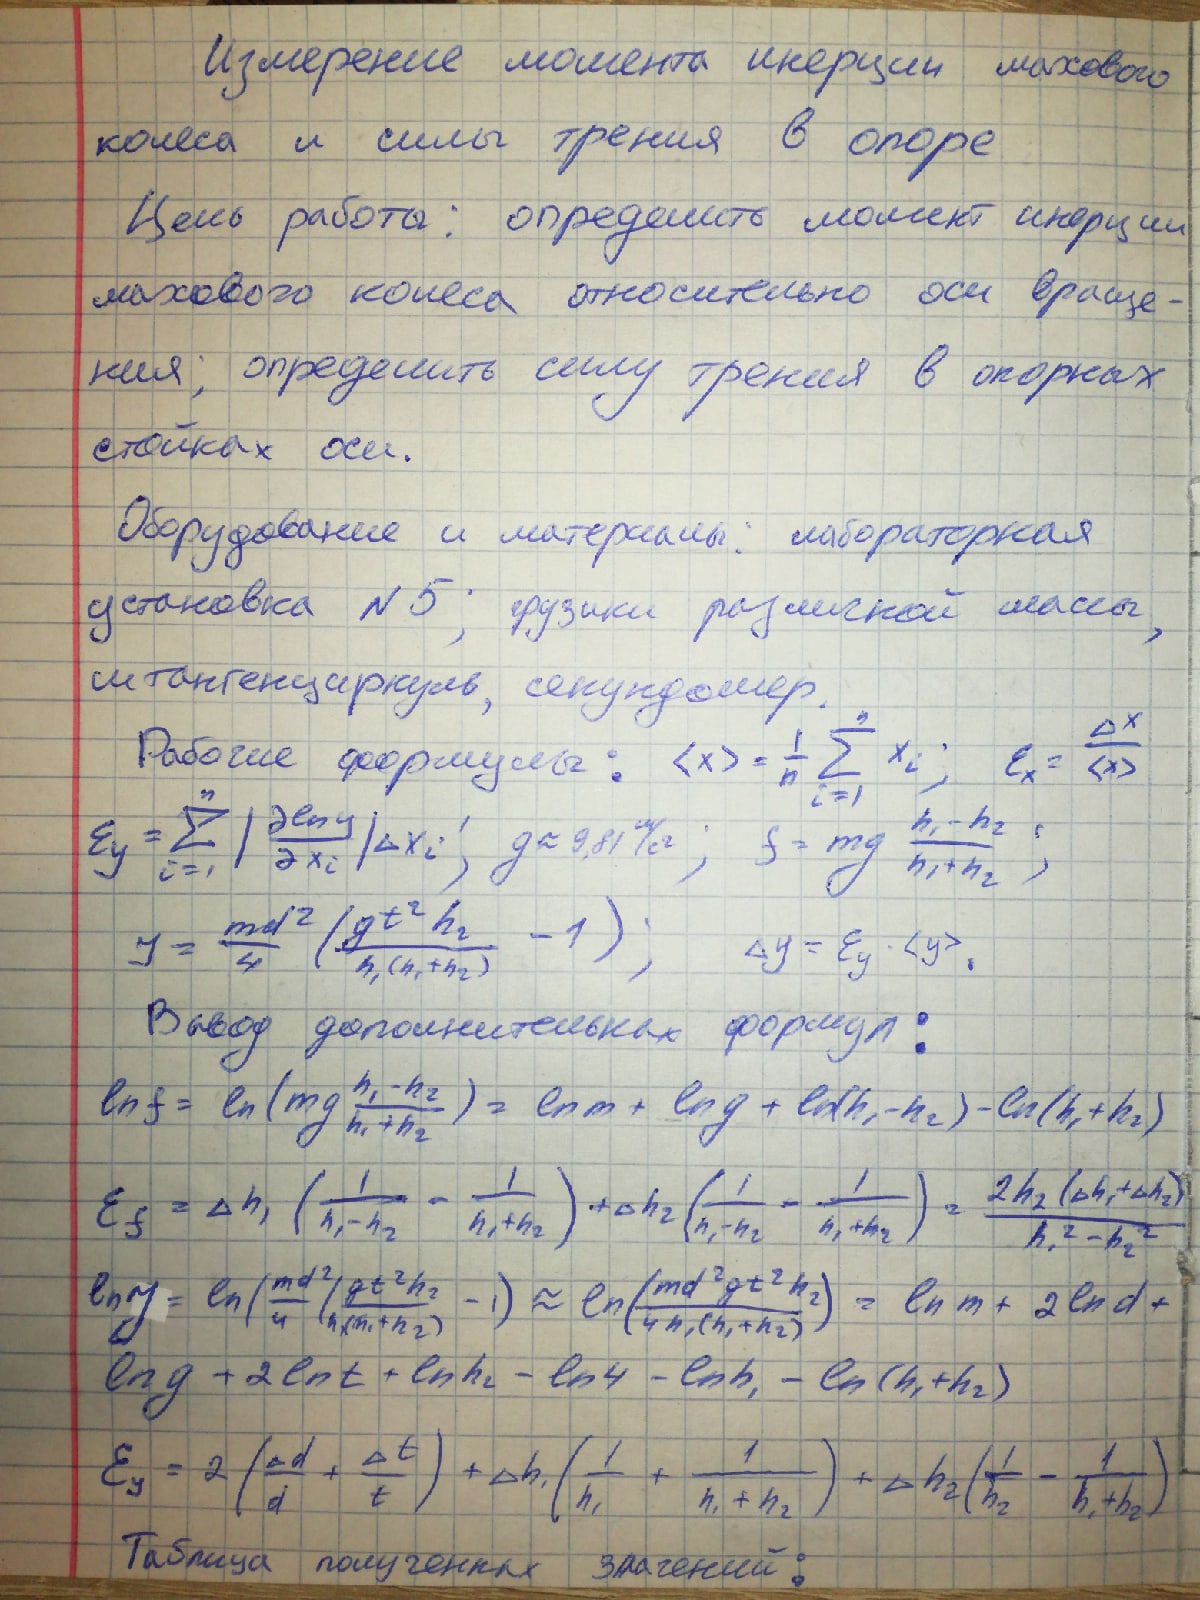 Измерение момента инерции махового
колеса и силы трения в опоре
Цель работы: определить момент инерции
махового колеса относительно оси враще-
ния; определить силу трения в опорных
стойках оси.
Оборудование и материалы: лабораторная
установка №5; грузики различной массы,
штангенциркуль, секундомер.
Рабочие формулы: <x> = 1/n ∑_{i=1}^{n} x_i; ε_x = Δx/<x>
ε_y = ∑_{i=1}^{n} |∂ln y/∂x_i| Δx_i; g ≈ 9,81 м/с²; f = mg (h₁-h₂)/(h₁+h₂);
y = md²/4 (gt²h₂/(h₁(h₁+h₂)) - 1); Δy = ε_y · <y>.
Вывод дополнительных формул:
ln f = ln(mg (h₁-h₂)/(h₁+h₂)) = ln m + ln g + ln(h₁-h₂) - ln(h₁+h₂)
ε_f = Δh₁ (1/(h₁-h₂) - 1/(h₁+h₂)) + Δh₂ (1/(h₁-h₂) - 1/(h₁+h₂)) = 2h₂(Δh₁+Δh₂)/(h₁²-h₂²)
ln y = ln(md²/4 (gt²h₂/(h₁(h₁+h₂)) - 1) ≈ ln(md²gt²h₂/(4h₁(h₁+h₂))) = ln m + 2 ln d +
ln g + 2 ln t + ln h₂ - ln 4 - ln h₁ - ln (h₁+h₂)
ε_y = 2 (Δd/d + Δt/t) + Δh₁ (1/h₁ + 1/(h₁+h₂)) + Δh₂ (1/h₂ - 1/(h₁+h₂))
Таблица полученных значений: